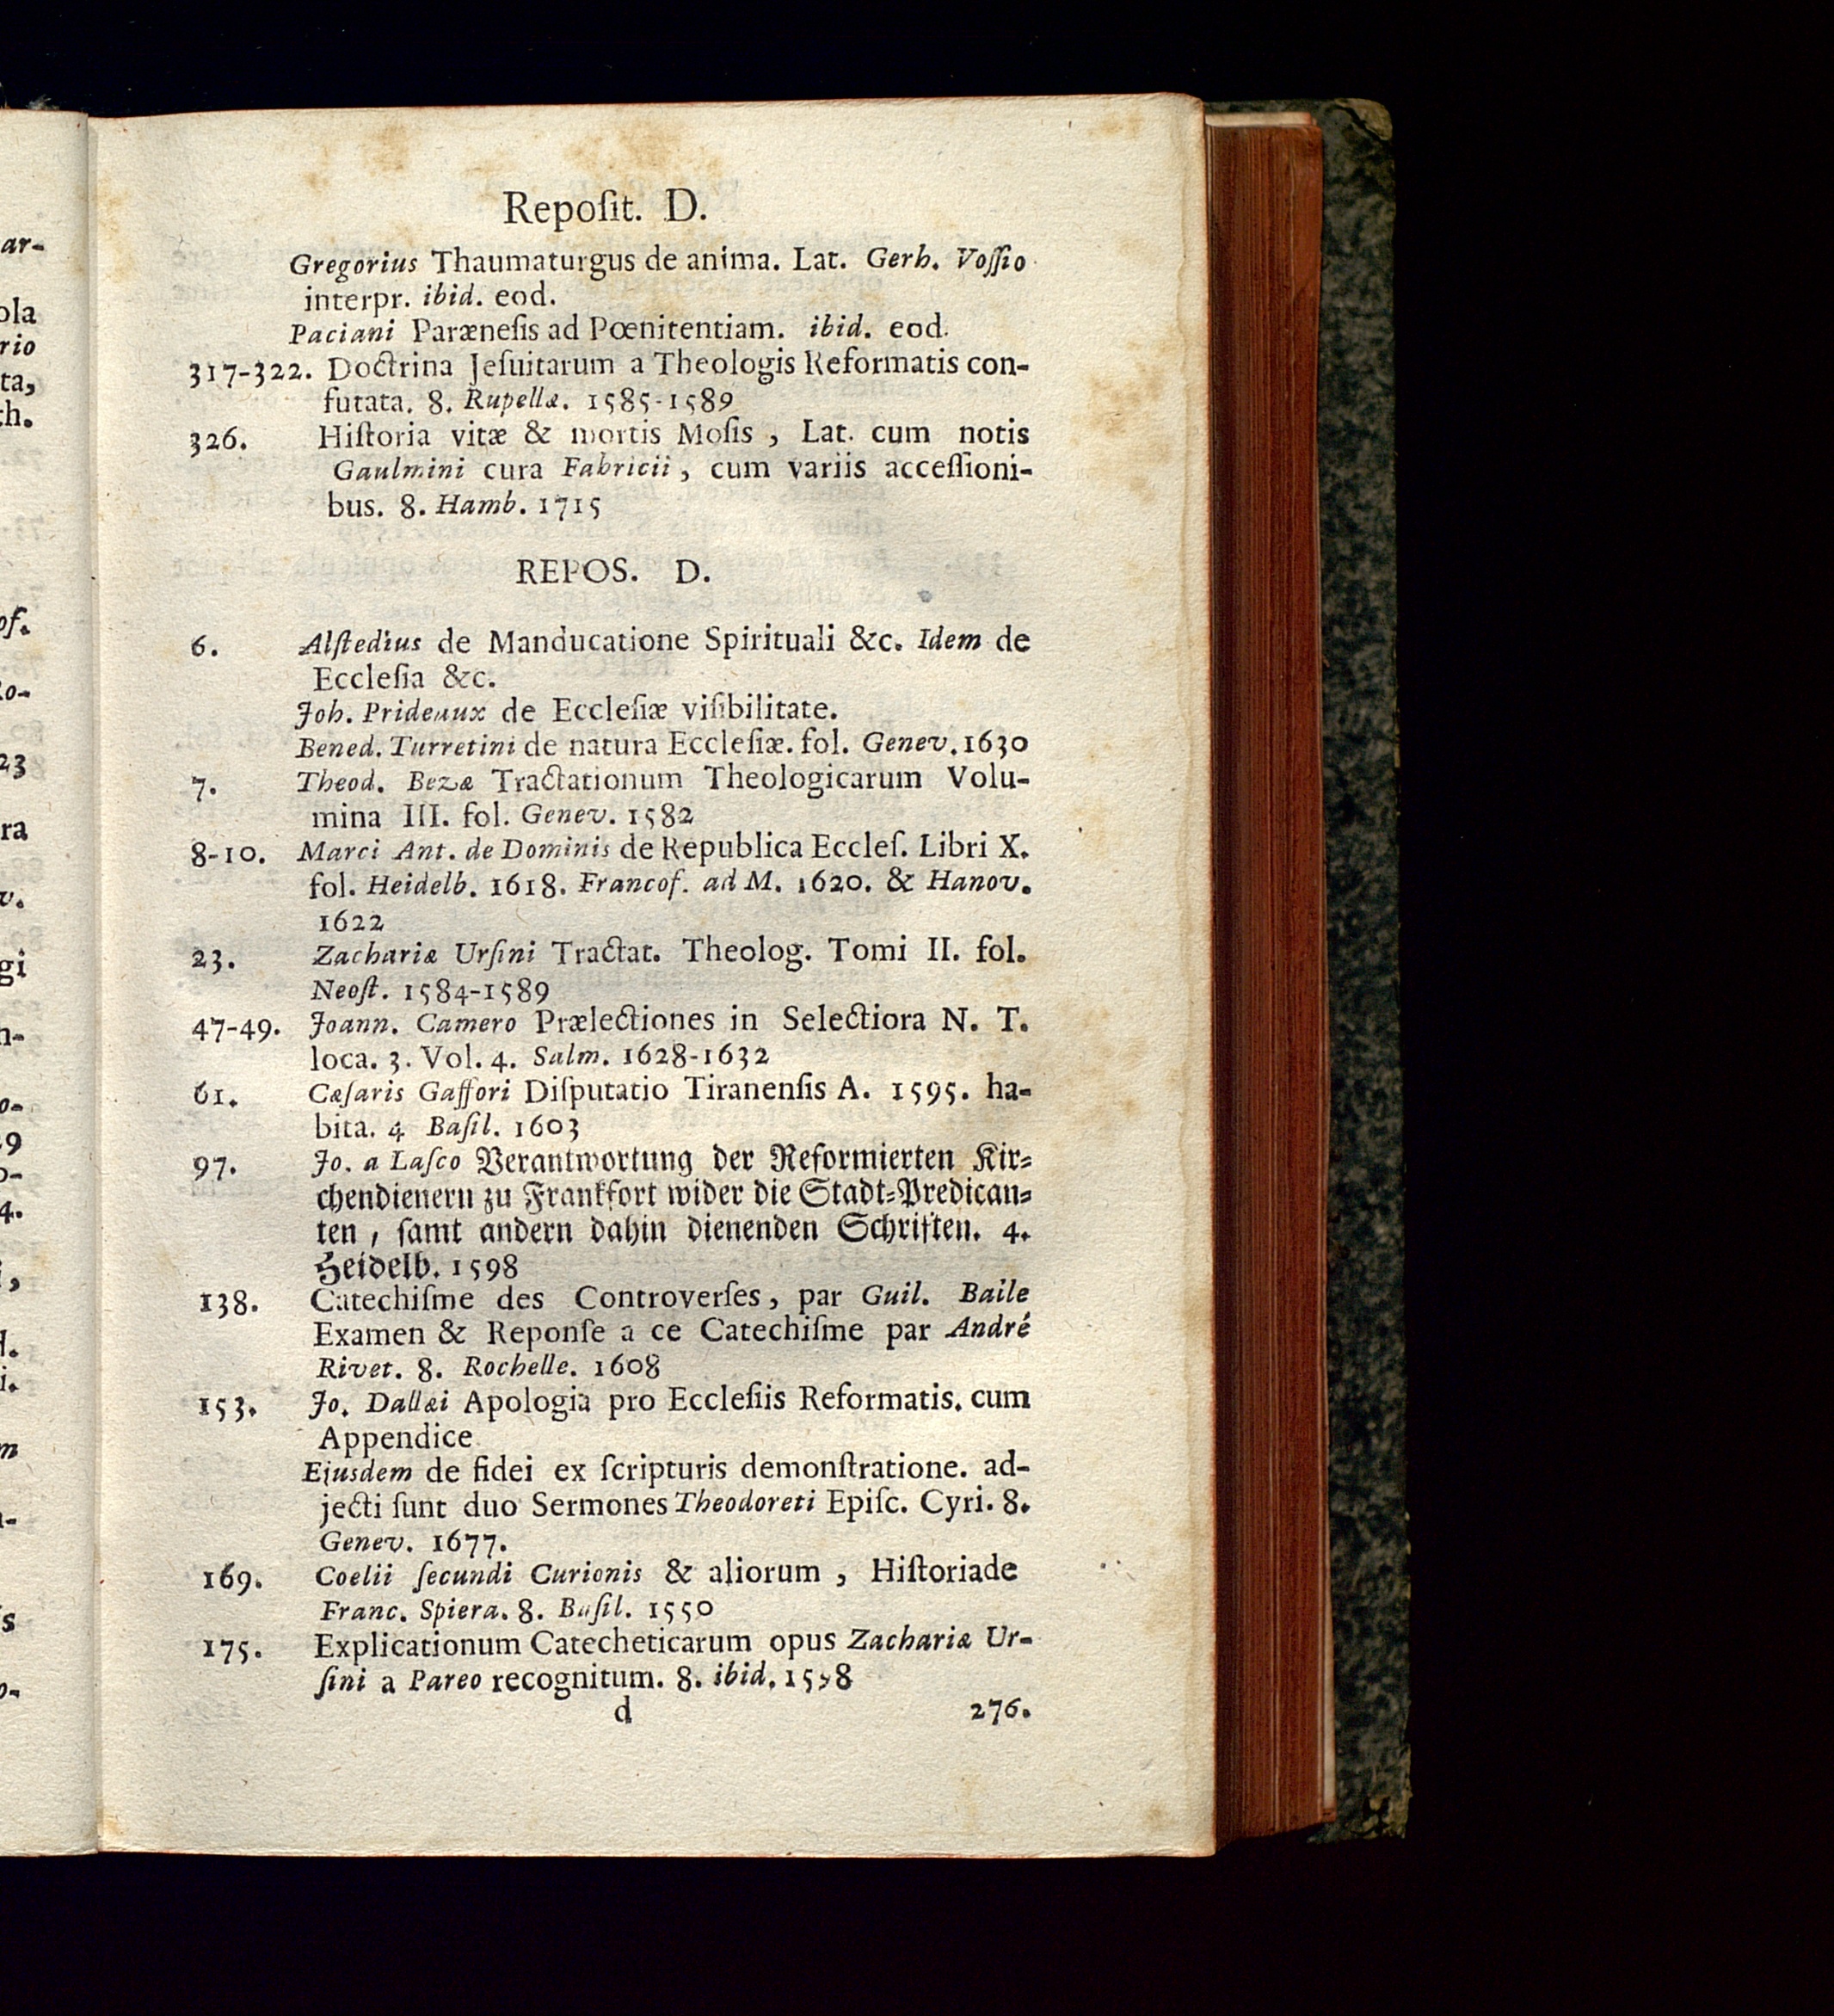 Reposit. D.
Gregorius Thaumaturgus de anima. Lat. Gerh. Vossio
interpr. ibid. eod.
Paciani Parænesis ad Pœnitentiam. ibid. eod.
317-322. Doctrina Jesuitarum a Theologis Reformatis con-
futata. 8. Rupellæ. 1585-1589
326. Historia vitæ & mortis Mosis, Lat. cum notis
Gaulmini cura Fabricii, cum variis accessioni-
bus. 8. Hamb. 1715
REPOS. D.
6. Alstedius de Manducatione Spirituali &c. Idem de
Ecclesia &c.
Joh. Prideaux de Ecclesiæ visibilitate.
Bened. Turretini de natura Ecclesiæ. fol. Genev. 1630
7. Theod. Bezæ Tractationum Theologicarum Volu-
mina III. fol. Genev. 1582
8-10. Marci Ant. de Dominis de Republica Eccles. Libri X.
fol. Heidelb. 1618. Francof. ad M. 1620. & Hanov.
1622
23. Zachariæ Ursini Tractat. Theolog. Tomi II. fol.
Neost. 1584-1589
47-49. Joann. Camero Prælectiones in Selectiora N. T.
loca. 3. Vol. 4. Salm. 1628-1632
61. Cæsaris Gaffori Disputatio Tiranensis A. 1595. ha-
bita. 4 Basil. 1603
97. Jo. a Lasco Verantwortung der Reformierten Kir-
chendienern zu Frankfort wider die Stadt-Predican-
ten, samt andern dahin dienenden Schriften. 4.
Heidelb. 1598
138. Catechisme des Controverses, par Guil. Baile
Examen & Reponse a ce Catechisme par André
Rivet. 8. Rochelle. 1608
153. Jo. Dallæi Apologia pro Ecclesiis Reformatis. cum
Appendice
Ejusdem de fidei ex scripturis demonstratione. ad-
jecti sunt duo Sermones Theodoreti Episc. Cyri. 8.
Genev. 1677.
169. Coelii secundi Curionis & aliorum, Historiade
Franc. Spiera. 8. Basil. 1550
175. Explicationum Catecheticarum opus Zachariæ Ur-
sini a Pareo recognitum. 8. ibid.
d 276.